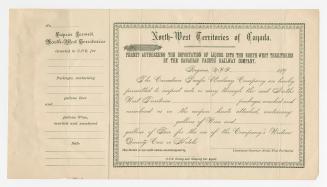 No.
Liquor Permit
North-West Territories
Granted to C.P.R. for
Packages, containing
gallons Beer
and
gallons Wine,
marked and numbered
Date
North-West Territories of Canada.
PERMIT AUTHORIZING THE IMPORTATION OF LIQUOR INTO THE NORTH-WEST TERRITORIES
BY THE CANADIAN PACIFIC RAILWAY COMPANY.
Regina, N.W.T. 189
The Canadian Pacific Railway Company are hereby
permitted to import into or carry through the said North-
West Territories packages marked and
numbered as on the coupon hereto attached, containing
gallons of Wine and
gallons of Beer for the use of the Company's Western
Dining Cars or Hotels.
Lieutenant-Governor North-West Territories.